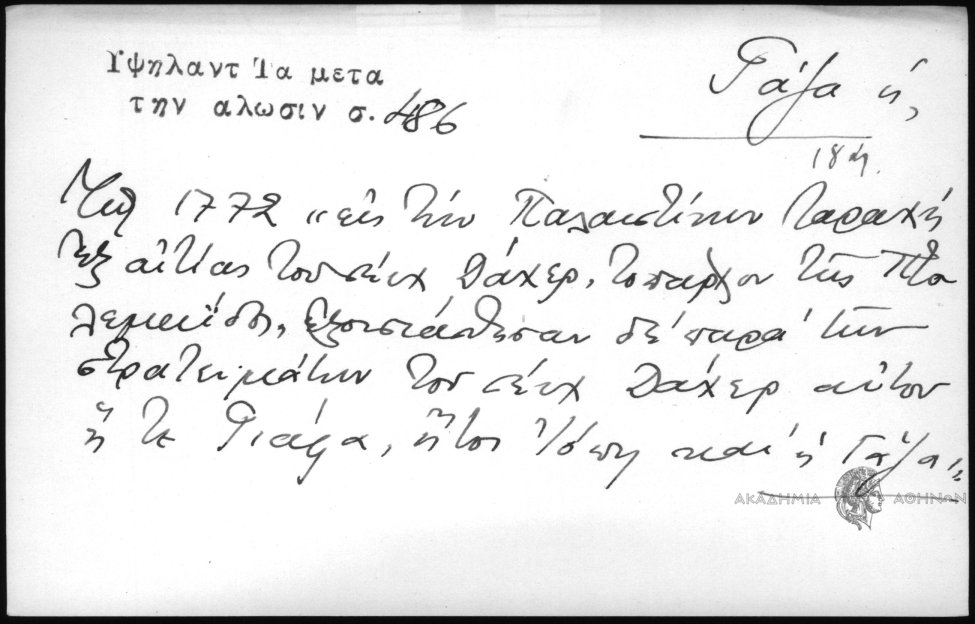 Υψηλαντ Τα μετα
την αλωσιν σ. 486
Γάζα ἡ,
18η.
1772 "εἰς τὴν Παλαιστίνην ταραχὴ
ἐξ αἰτίας τοῦ σέυχ Δάχερ, τοπάρχου τῆς Πτο
λεμαΐδος, ἐξουσιάσθησαν δὲ παρὰ τῶν
στρατευμάτων τοῦ σέυχ Δάχερ αὐτοῦ
ἥ τε Γιάφα, ἤτοι Ἰόπη καὶ ἡ Γάζα"
ΑΚΑΔΗΜΙΑ ΑΘΗΝΩΝ